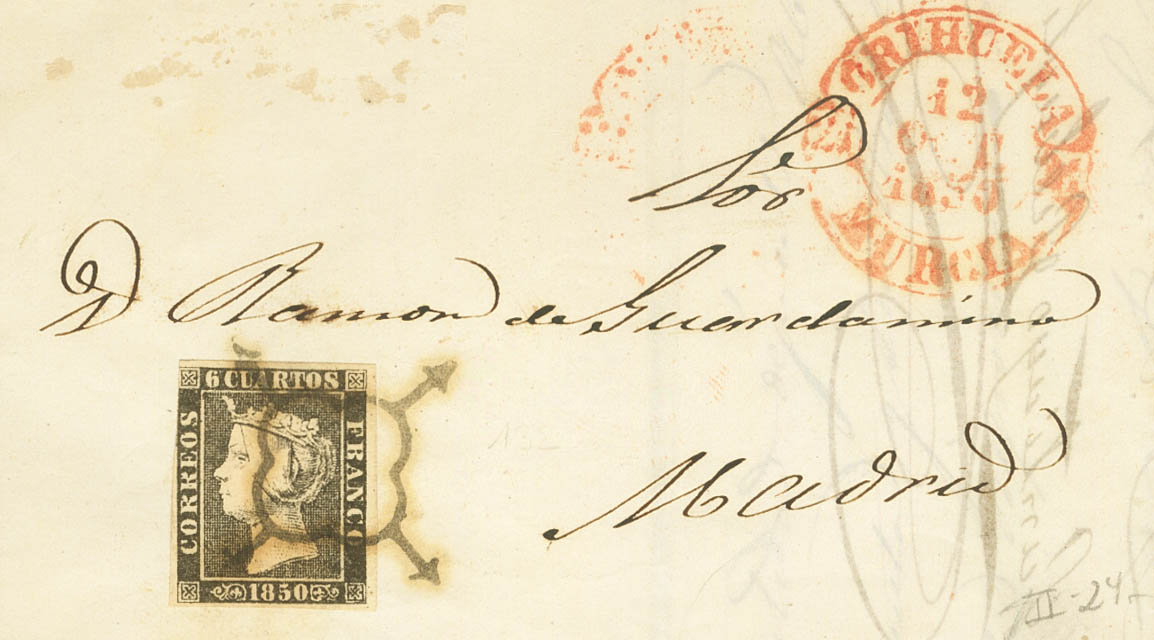 ORIHUELA
12
MURCIA
Sor
D Ramon de Guardamino
6 CUARTOS
CORREOS
FRANCO
1850
Madrid
II-24-